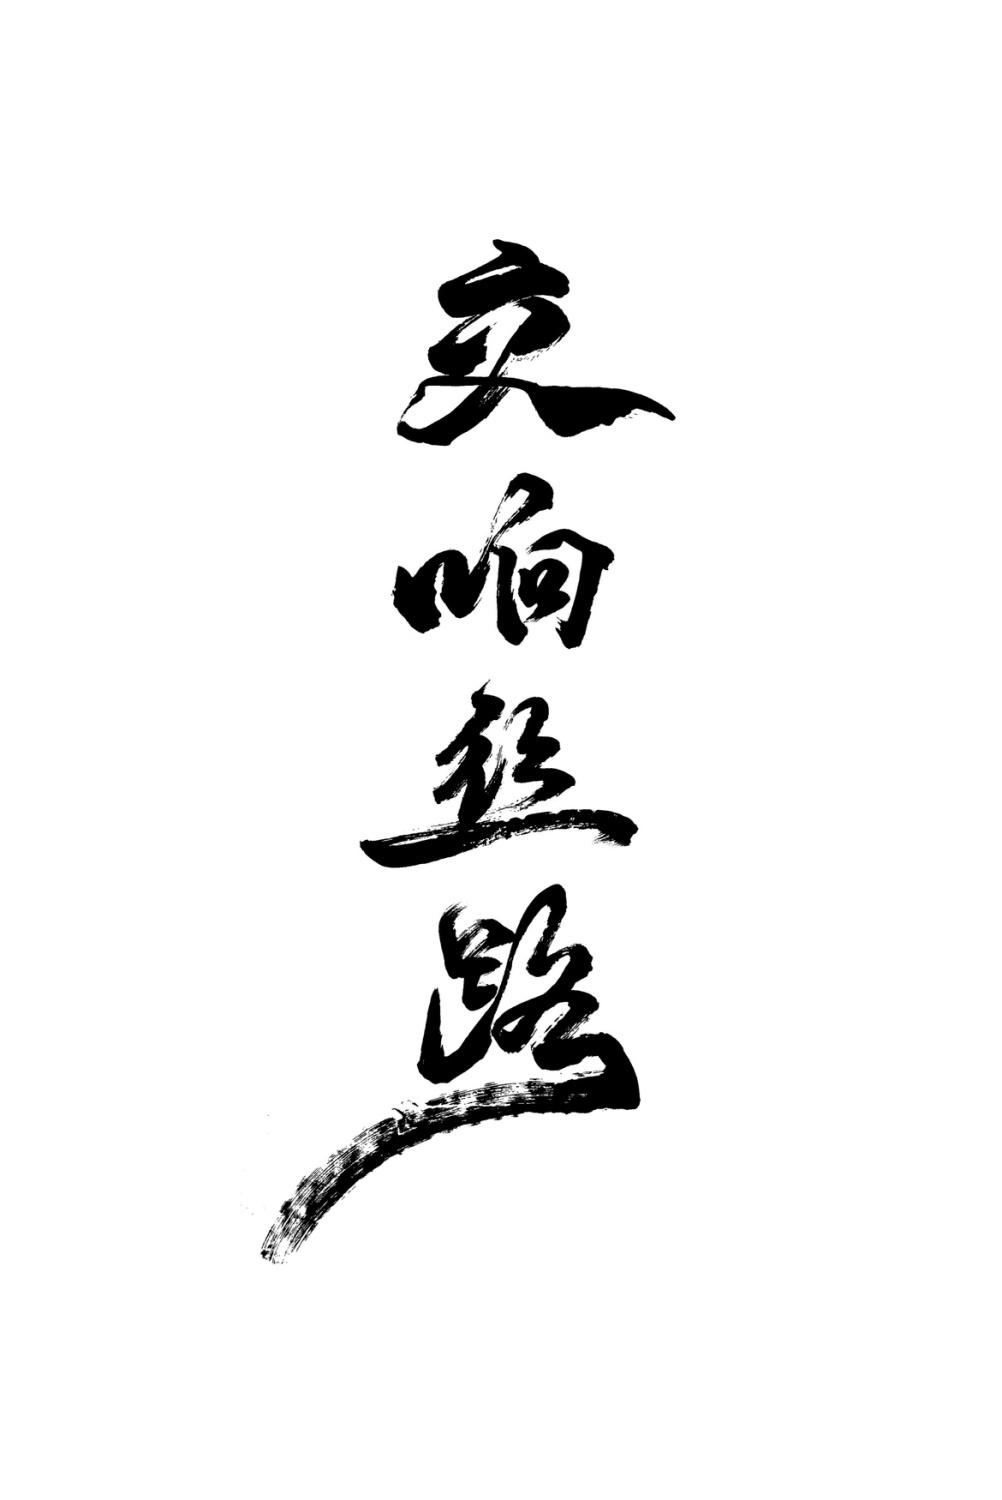 交响丝路